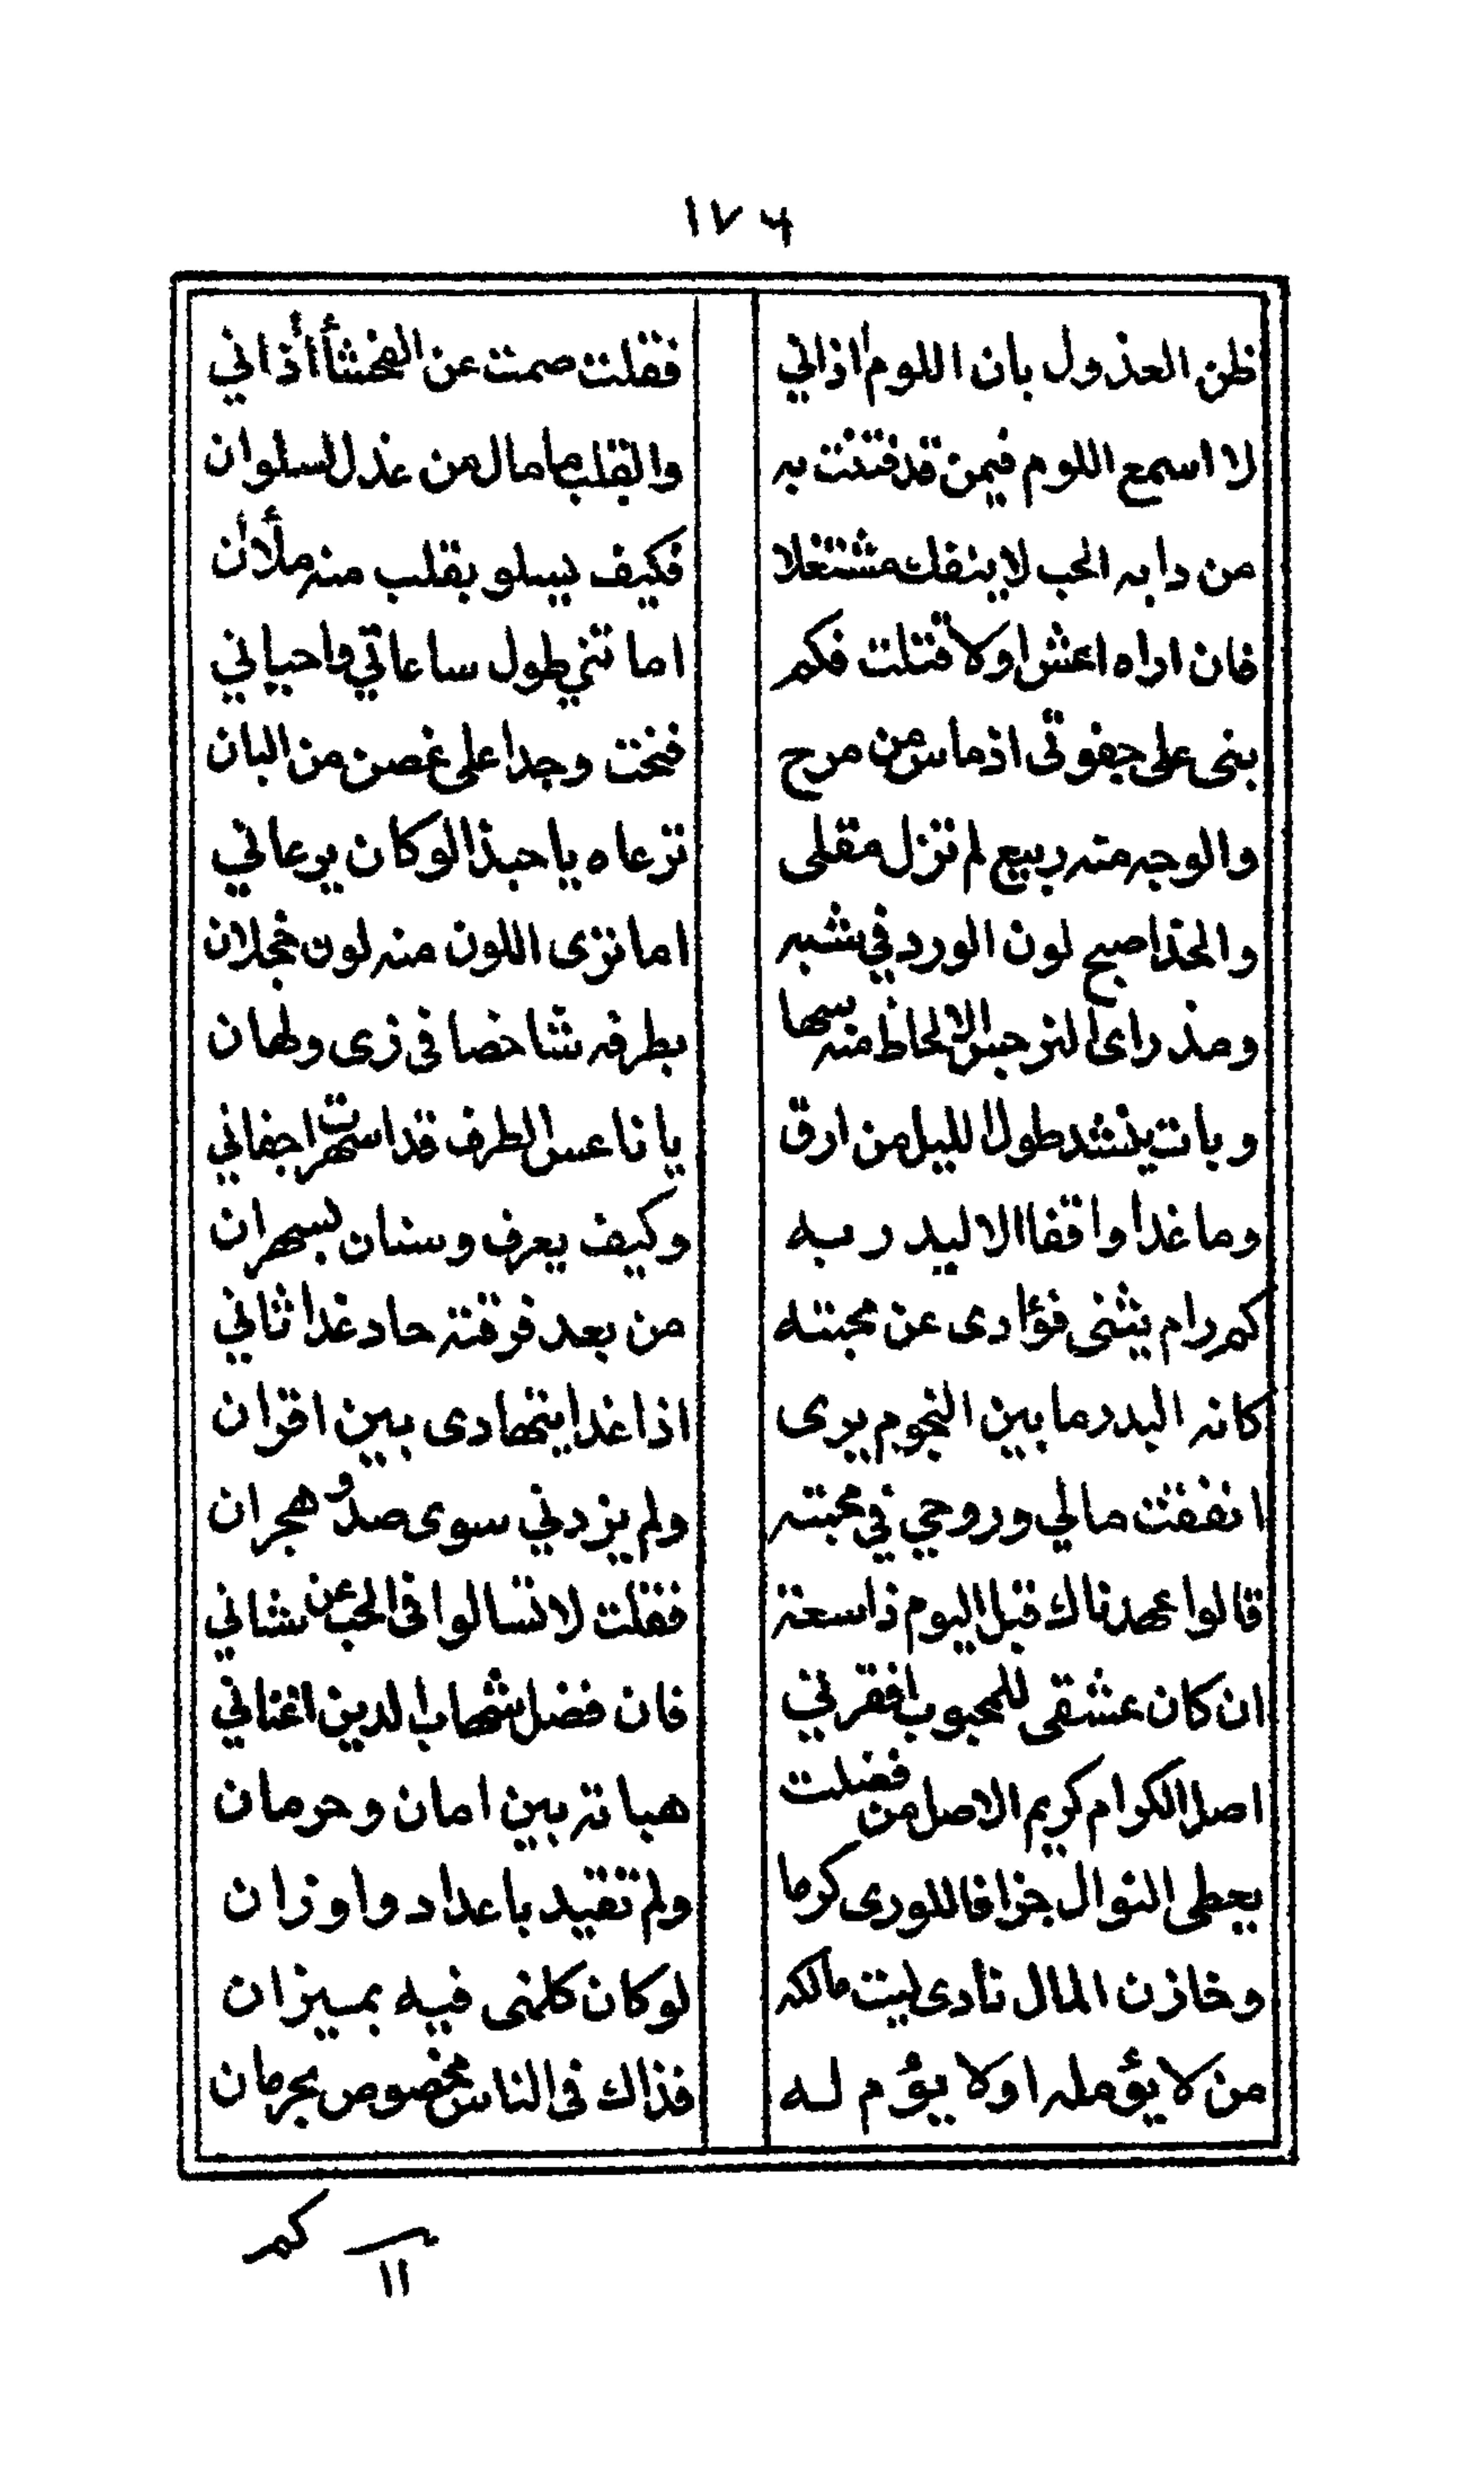 ١٧٦
ظن العذول بان اللوم اذاني فقلت صمت عن الفخشأ أذاني
لا اسمع اللوم فيمن قد فتنت به والقلب ما مال من عذل لسلوان
من دابه الحب لا ينفك مشتغلا فكيف يسلو بقلب منه ملأن
فان اراه اعش اولا قتلت فكم اما تني طول ساعاتي واحياني
بنى على جفوتى اذ ماس من مرح فنحت وجدا على غصن من البان
والوجه منه ربيع لم تزل مقلى ترعاه يا حبذا لو كان يرعاني
والخد اصبح لون الورد في شبه اما ترى اللون منه لون خجلان
ومذ راى النرجس الالحاظ منه سها بطرفه شاخصا فى زى ولهان
وبات ينشد طول الليل من ارق يا ناعس الطرف قد اسهرت اجفاني
وما غدا واقفا الا ليدر به وكيف يعرف وسنان بسهران
كم رام يثنى فؤادى عن محبته من بعد فرقته حاد غدا ثاني
كانه البدر ما بين النجوم يرى اذا غدا يتهادى بين اقران
انفقت مالي وروحي في محبته ولم يزدني سوى صد وهجران
قالوا عهدناك قبل اليوم ذا سعة فقلت لا تسالوا فى الحب عن شاني
ان كان عشقى للمحبوب افقرني فان فضل شهاب الدين اغناني
اصل الكرام كريم الاصل من فضلت هباته بين امان وحرمان
يعطى النوال جزافا للورى كرما ولم تقيد باعداد واوزان
وخازن المال نادى ليت مالكه لو كان كلمنى فيه بميزان
من لا يؤمله اولا يؤم له فذاك فى الناس مخصوص بحرمان
كم
١١